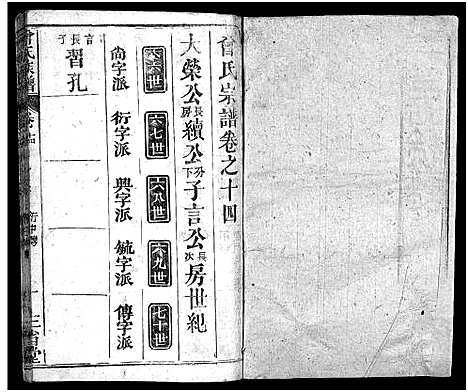 曾氏宗譜卷之十四
大榮公長房續公分下子言公長次房世紀
六六世
六七世
六八世
六九世
七十世
尚字派
衍字派
興字派
毓字派
傳字派
言長子
習孔
曾氏族譜
三省堂